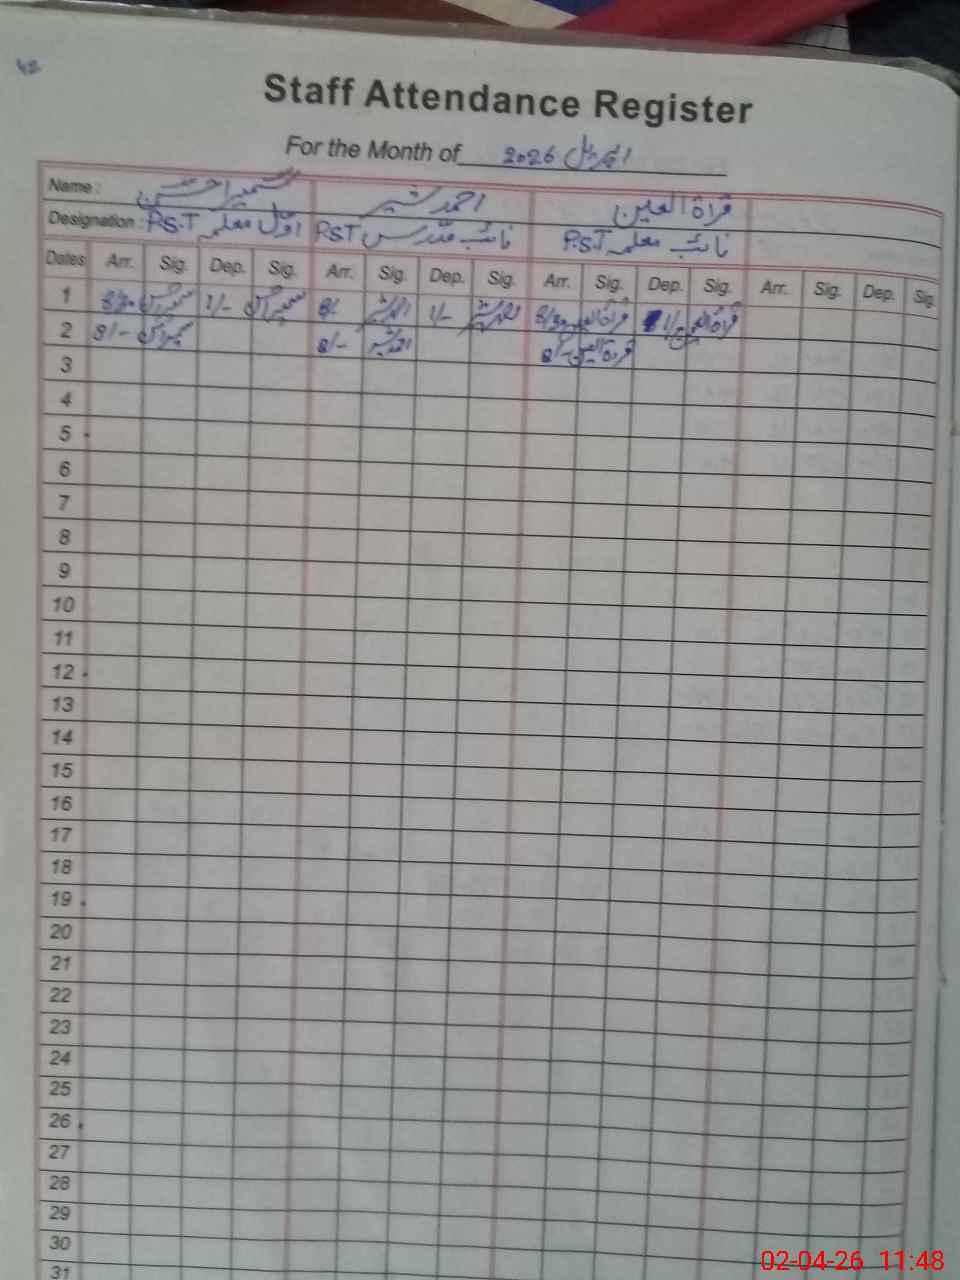 42
Staff Attendance Register
For the Month of اپریل 2026
Name : سمیرا حسن احمد شیر قراۃ العین
Designation : P.S.T اول معلمہ P.S.T نائب مدرس P.S.T نائب معلمہ
Dates Arr. Sig. Dep. Sig. Arr. Sig. Dep. Sig. Arr. Sig. Dep. Sig. Arr. Sig. Dep. Sig.
1 8/30 1/- 8/- احمد شیر 1/- احمد شیر 8/30 قراۃ العین 1/- قراۃ العین
2 8/- 8/- احمد شیر 8/- قراۃ العین
3
4
5
6
7
8
9
10
11
12
13
14
15
16
17
18
19
20
21
22
23
24
25
26
27
28
29
30
31
02-04-26 11:48